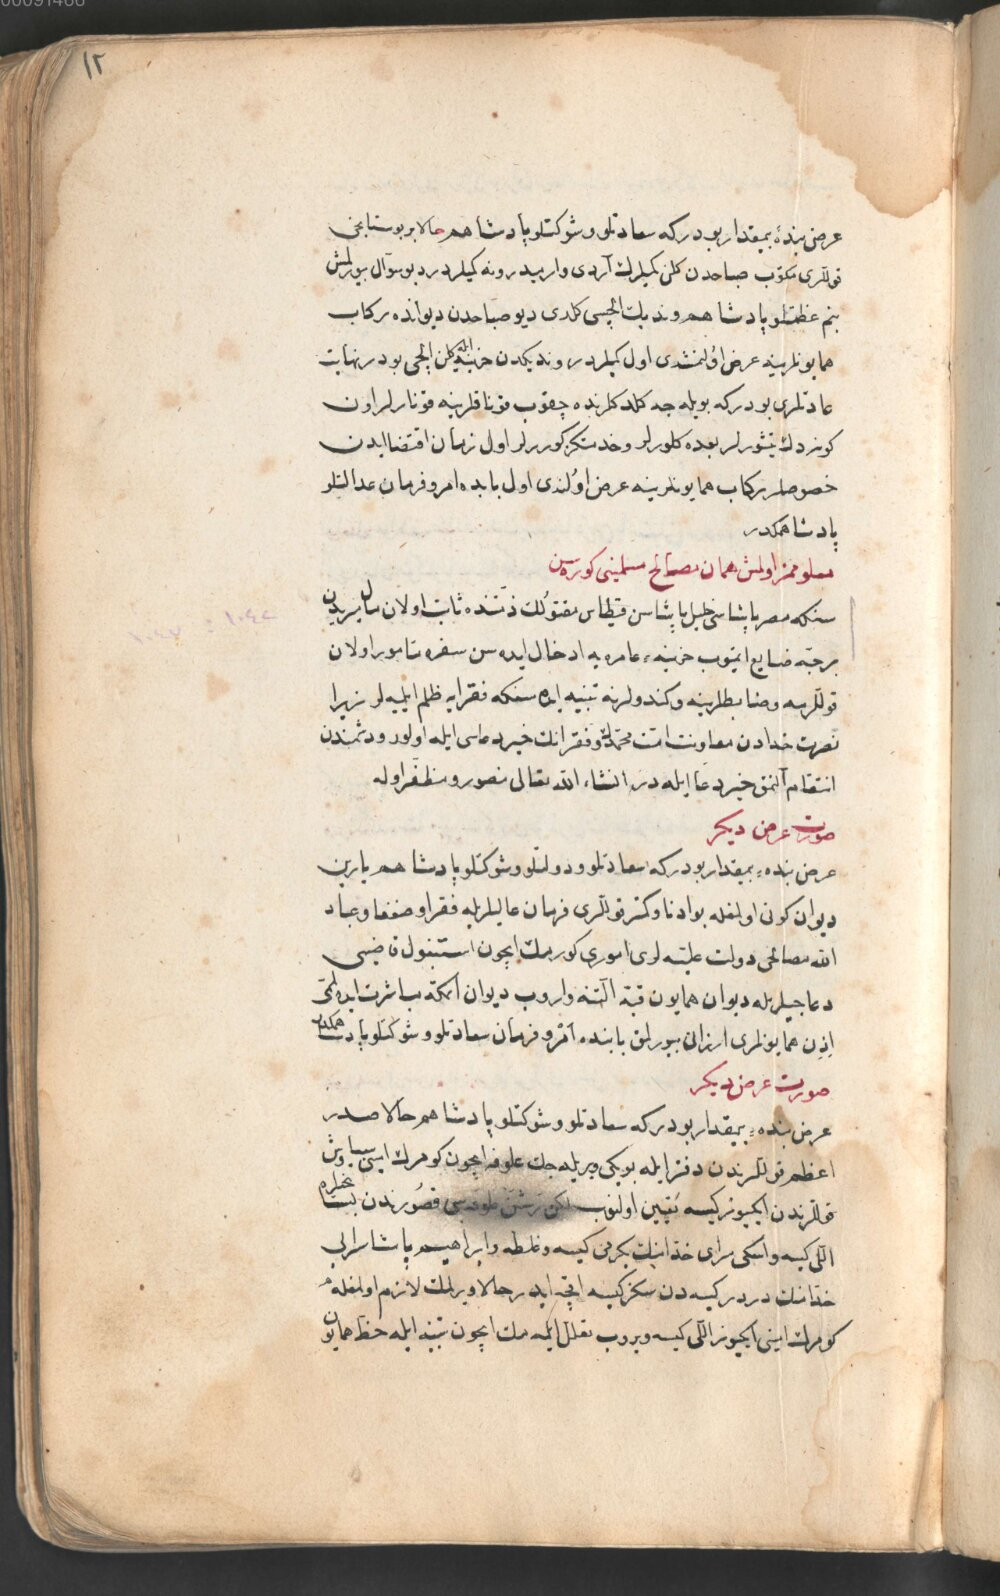 00091466
١٢
عرض بندهٔ بیمقدار بودر که سعادتلو و شوکتلو پادشاهم حالا بر بوستانجی
قوللری مکتوب صباحدن کلن کیملردر آردی وارمیدر و نه کیلردر دیو سؤال بیورلمش
بنم عظمتلو پادشاهم وندیك ایلچیسی کلدی دیو صباحدن دیوانده رکاب
همایونلرینه عرض اولنمشدی اول کیلردر وندیکدن خزینه ایله کلن ایلچی بودر نهایت
عادتلری بودر که بویله جه کلدکلرنده چیقوب قوناقلرینه قونارلر اون
کون دك یتشورلر بعده کلورلر و خدمتکز کوررلر اول زمان اقتضا ایدن
خصوصلر رکاب همایونلرینه عرض اولندی اول بابده امر و فرمان عدالتلو
پادشاهمکدر
معلوممز اولمش همان مصالح مسلمینی کوره سن
سنکه مصر پاشاسی خلیل پاشاسن قیطاس مقتولك ذمتنده ثابت اولان مال میریدن
بر حبه ضایع ایتیوب خزینهٔ عامره یه ادخال ایده سن سفره مأمور اولان
قوللریمه و ضابطلرینه و کندولرنه تنبیه ایده سنکه فقرایه ظلم ایلمیه لر زیرا
نصرت خدادن معاونت امت محمدك و فقرانك خیر دعاسی ایله اولور و دشمندن
انتقام آلنمق خیر دعا ایله در انشاء الله تعالی منصور و مظفر اوله
صورت عرض دیکر
عرض بندهٔ بیمقدار بودر که سعادتلو و دولتلو و شوکتلو پادشاهم یارین
دیوان کونی اولمغله بو ادنا و کمتر قوللری فرمان عالیلریله فقرا و ضعفا و عباد
الله مصالحی دولت علیه لری اموری کورمك ایچون استنبول قاضیسی
دعاجیلریله دیوان همایون قبه التنه واروب دیوان ایتمکه مباشرت ایده لمی
اذن همایونلری ارزانی بیورلمق بابنده امر و فرمان سعادتلو و شوکتلو پادشاهمکدر
صورت عرض دیکر
عرض بندهٔ بیمقدار بودر که سعادتلو و شوکتلو پادشاهم حالا صدر
اعظم قوللرندن دفتر ایله بو یکی ویریله جك علوفه ایچون کومرك امینی سیاوش
قوللرندن ایکیوز کیسه تعیین اولنوب لکن رشن علوفه سی قصورندن
اللی کیسه و اسکی سرای خدامنك یکرمی کیسه و غلطه و ابراهیم پاشا سرایی
خدامنك دردر کیسه دن سکز کیسه اقچه ایدر حالا ویرلمك لازم اولمغله
کومرك امینی ایکیوز اللی کیسه ویروب تعلل ایلمه مك ایچون تنبیه ایله خط همایون